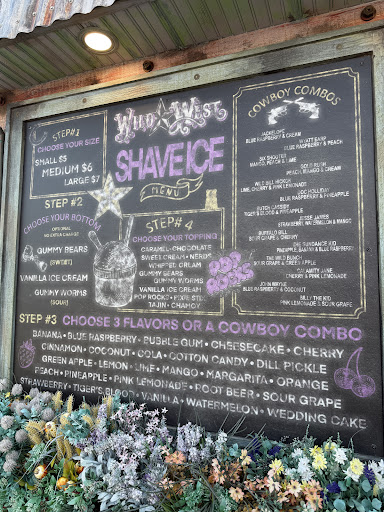 WILD WEST
SHAVE ICE
MENU
STEP #1
CHOOSE YOUR SIZE
SMALL $5
MEDIUM $6
LARGE $7
STEP #2
CHOOSE YOUR BOTTOM
OPTIONAL
GUMMY BEARS
(SWEET)
VANILLA ICE CREAM
GUMMY WORMS
(SOUR)
STEP #4
CHOOSE YOUR TOPPING
CARAMEL • CHOCOLATE
SWEET CREAM • NERDS
WHIPPED CREAM
GUMMY BEARS
GUMMY WORMS
VANILLA ICE CREAM
POP ROCKS • PIXIE STIX
TAJIN • CHAMOY
COWBOY COMBOS
BLUE RASPBERRY & CREAM
WYATT EARP
BLUE RASPBERRY & PEACH
SIX SHOOTER
MANGO, PEACH & LIME
GOLD RUSH
PEACH, MANGO & CREAM
WILD BILL HICKOK
LIME, CHERRY & PINK LEMONADE
DOC HOLLIDAY
BLUE RASPBERRY & PINEAPPLE
BUTCH CASSIDY
TIGER'S BLOOD & PINEAPPLE
JESSE JAMES
STRAWBERRY, WATERMELON & MANGO
BUFFALO BILL
SOUR GRAPE & CHERRY
THE SUNDANCE KID
PINEAPPLE, BANANA & BLUE RASPBERRY
THE WILD BUNCH
SOUR GRAPE & GREEN APPLE
CALAMITY JANE
CHERRY & PINK LEMONADE
JOHN WAYNE
BLUE RASPBERRY & COCONUT
BILLY THE KID
PINK LEMONADE & SOUR GRAPE
STEP #3 CHOOSE 3 FLAVORS OR A COWBOY COMBO
BANANA • BLUE RASPBERRY • BUBBLE GUM • CHEESECAKE • CHERRY
CINNAMON • COCONUT • COLA • COTTON CANDY • DILL PICKLE
GREEN APPLE • LEMON • LIME • MANGO • MARGARITA • ORANGE
PEACH • PINEAPPLE • PINK LEMONADE • ROOT BEER • SOUR GRAPE
STRAWBERRY • TIGER'S BLOOD • VANILLA • WATERMELON • WEDDING CAKE